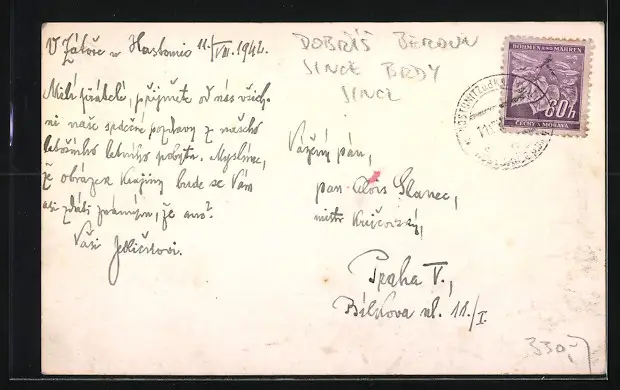 V Zátoře u Hostomic 11./VIII. 1942.
Milí přátelé, přijměte od nás všich-
ni naše srdečné pozdravy z našeho
letošního letního pobytu. Myslíme,
že obrázek krajiny bude se Vám
asi zdáti známým, že ano?
Vaši
DOBŘÍŠ BEROUN
SINCE BRDY
SINCE
BÖHMEN UND MÄHREN
60h
ČECHY A MORAVA
Vážený pán,
pan Alois Slanec,
mistr krejčovský,
Praha V.,
Bílkova ul. 11./I.
330,-